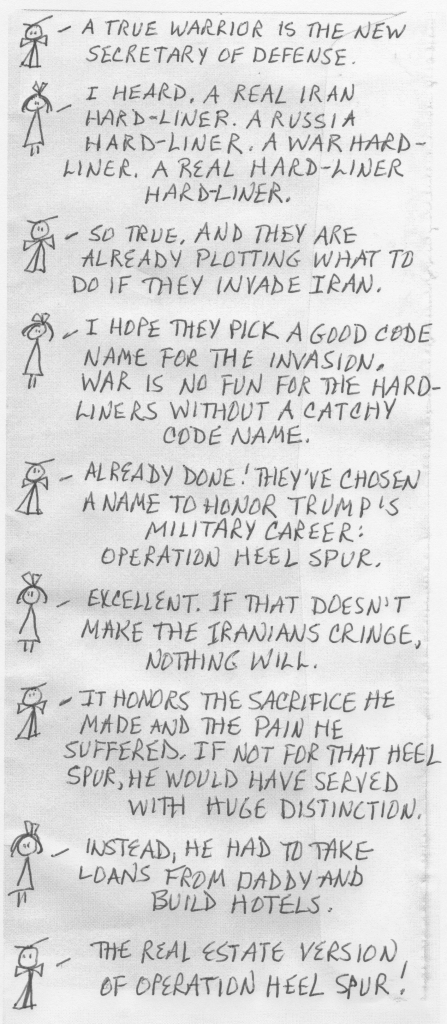 - A TRUE WARRIOR IS THE NEW
SECRETARY OF DEFENSE.
- I HEARD. A REAL IRAN
HARD-LINER. A RUSSIA
HARD-LINER. A WAR HARD-
LINER. A REAL HARD-LINER
HARD-LINER.
- SO TRUE. AND THEY ARE
ALREADY PLOTTING WHAT TO
DO IF THEY INVADE IRAN.
- I HOPE THEY PICK A GOOD CODE
NAME FOR THE INVASION.
WAR IS NO FUN FOR THE HARD-
LINERS WITHOUT A CATCHY
CODE NAME.
- ALREADY DONE! THEY'VE CHOSEN
A NAME TO HONOR TRUMP'S
MILITARY CAREER:
OPERATION HEEL SPUR.
- EXCELLENT. IF THAT DOESN'T
MAKE THE IRANIANS CRINGE,
NOTHING WILL.
- IT HONORS THE SACRIFICE HE
MADE AND THE PAIN HE
SUFFERED. IF NOT FOR THAT HEEL
SPUR, HE WOULD HAVE SERVED
WITH HUGE DISTINCTION.
- INSTEAD, HE HAD TO TAKE
LOANS FROM DADDY AND
BUILD HOTELS.
- THE REAL ESTATE VERSION
OF OPERATION HEEL SPUR!